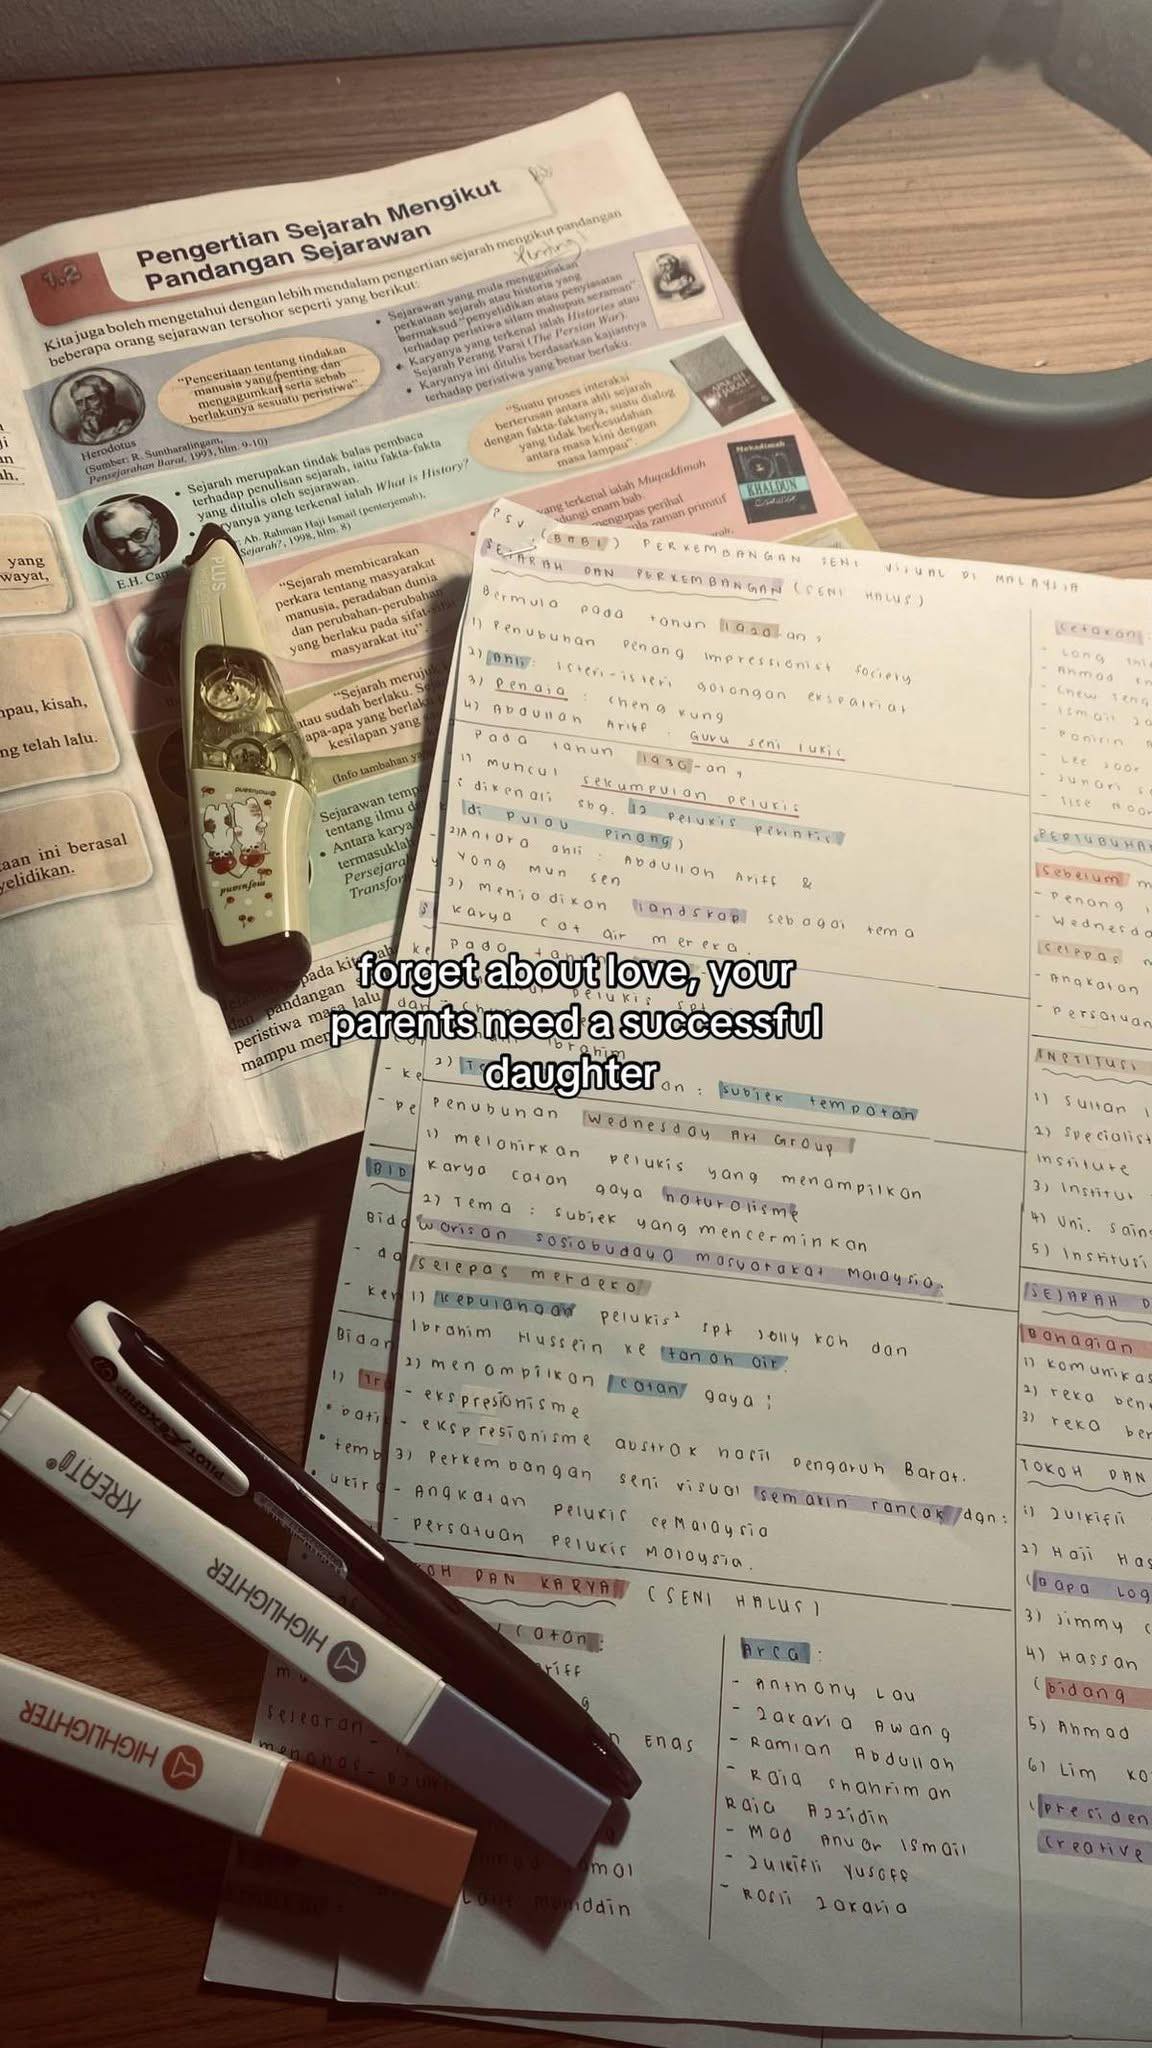 1.2
Pengertian Sejarah Mengikut
Pandangan Sejarawan
Kita juga boleh mengetahui dengan lebih mendalam pengertian sejarah mengikut pandangan
beberapa orang sejarawan tersohor seperti yang berikut:
"Penceritaan tentang tindakan
manusia yang penting dan
mengagumkan serta sebab
berlakunya sesuatu peristiwa"
Herodotus
(Sumber: R. Suntharalingam,
Pensejarahan Barat, 1993, hlm. 9-10)
Sejarawan yang mula menggunakan
perkataan sejarah atau historia yang
bermaksud "penyelidikan atau penyiasatan
terhadap peristiwa silam mahupun sezaman"
Karyanya yang terkenal ialah Histories atau
Sejarah Perang Parsi (The Persian War).
Karyanya ini ditulis berdasarkan kajiannya
terhadap peristiwa yang benar berlaku.
"Suatu proses interaksi
berterusan antara ahli sejarah
dengan fakta-faktanya, suatu dialog
yang tidak berkesudahan
antara masa kini dengan
masa lampau".
Sejarah merupakan tindak balas pembaca
terhadap penulisan sejarah, iaitu fakta-fakta
yang ditulis oleh sejarawan.
yanya yang terkenal ialah What is History?
Ab. Rahman Haji Ismail (penterjemah),
Sejarah?, 1998, hlm. 8)
E.H. Car
yang terkenal ialah Muqaddimah
dungi enam bab.
mengupas perihal
zaman primitif
Mukadimah
KHALDUN
"Sejarah membicarakan
perkara tentang masyarakat
manusia, peradaban dunia
dan perubahan-perubahan
yang berlaku pada sifat-sifat
masyarakat itu"
"Sejarah meruju
atau sudah berlaku. Se
apa-apa yang berlaku
kesilapan yang
(Info tambahan
Sejarawan temp
tentang ilmu
Antara karya
termasuklah
Persejara
Transfor
yang
wayat,
mpau, kisah,
ng telah lalu.
taan ini berasal
yelidikan.
pada kit
dan pandangan
peristiwa masa lalu
mampu mem
PLUS
mofusand
PSV (BAB 1) PERKEMBANGAN SENI VISUAL DI MALAYSIA
SEJARAH DAN PERKEMBANGAN (SENI HALUS)
Bermula pada tahun 1920-an,
1) Penubuhan Penang Impressionist Society
2) Ahli: Isteri-isteri golongan ekspatriat
3) Penaja: Cheng Kung
4) Abdullah Ariff: Guru seni lukis
Pada tahun 1930-an,
1) muncul sekumpulan pelukis
: dikenali sbg. 12 pelukis perintis
di Pulau Pinang)
2) Antara ahli: Abdullah Ariff &
Yong Mun Sen
3) menjadikan landskap sebagai tema
karya cat air mereka.
Pada
pelukis spt
Ibrahim
2)
an: subjek tempatan
Penubuhan Wednesday Art Group
1) melahirkan pelukis yang menampilkan
karya catan gaya naturalisme
2) Tema: subjek yang mencerminkan
warisan sosiobudaya masyarakat Malaysia.
selepas merdeka
1) kepulangan pelukis² spt Jolly Koh dan
Ibrahim Hussein ke tanah air.
2) menampilkan catan gaya:
- ekspresionisme
- ekspresionisme abstrak hasil pengaruh Barat.
3) Perkembangan seni visual semakin rancak dgn:
- Angkatan Pelukis SeMalaysia
- Persatuan Pelukis Malaysia.
OH DAN KARYA (SENI HALUS)
catan:
riff
ENAS
mal
middin
Arca:
- Anthony Lau
- Zakaria Awang
- Ramlan Abdullah
- Raja Shahriman
Raja Azzidin
- Mad Anuar Ismail
- Zulkifli Yusoff
- Rosli Zakaria
cetakan:
- Long Thi
- Ahmad
- Chew Teng
- Ismail
- Ponirin
- Lee Joo
- Juhari
- Ilse Noor
PERTUBUHAN
sebelum m
- Penang
- Wednesda
selepas m
- Angkatan
- Persatuan
INSTITUSI
1) Sultan I
2) Specialist
Institute
3) Institut
4) Uni. Sains
5) Institusi
SEJARAH D
Bahagian
1) Komunikas
2) reka ben
3) reka ber
TOKOH DAN
1) Zulkifli
2) Haji Has
(Bapa Log
3) Jimmy C
4) Hassan
(bidang
5) Ahmad
6) Lim Ko
(presiden
creative
BID
Bida
- da
- ker
Bidan
1) Tra
• bati
• temb
• ukir
forget about love, your
parents need a successful
daughter
PILOT
KREATO®
HIGHLIGHTER
HIGHLIGHTER